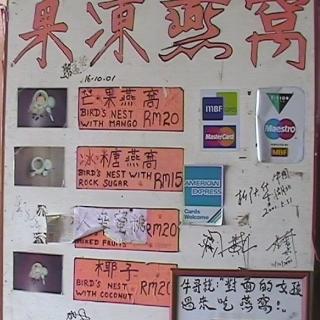 果凍燕窩
16.10.01
芒果燕窩
BIRD'S NEST
WITH MANGO RM20
MBF
MasterCard
Maestro
MBF
冰糖燕窩
BIRD'S NEST WITH
ROCK SUGAR RM15
AMERICAN
EXPRESS
Cards
Welcome
RM20
MIXED FRUITS
椰子
BIRD'S NEST
WITH COCONUT RM20
牛哥說:"對面的女孩
過來吃燕窩!"